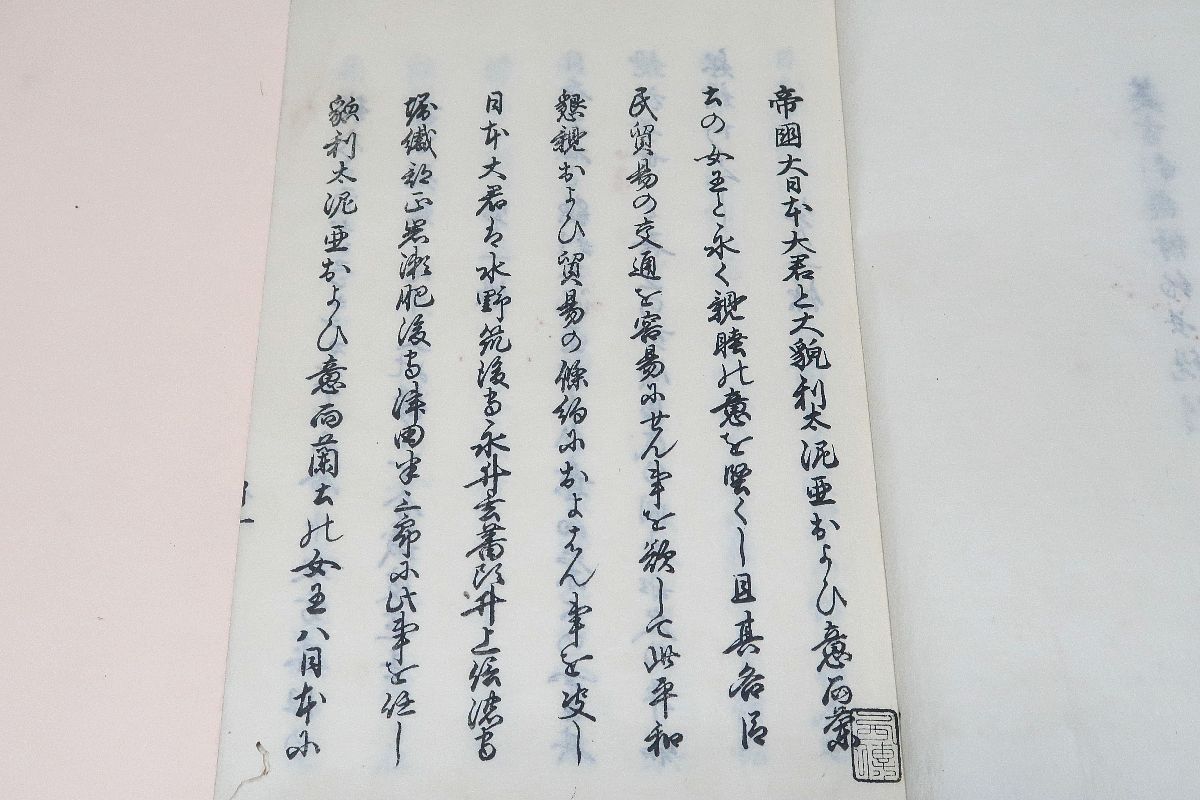 帝國大日本大君と大貌利太泥亜およひ意而蘭
士の女王と永く親睦の意を堅くし且其各臣
民貿易の交通を容易にせん事を欲して此平和
懇親および貿易の條約におよはん事を決し
日本大君は水野筑後守永井玄蕃頭井上信濃守
堀織部正岩瀬肥後守津田半三郎に此事を任し
貌利太泥亜およひ意而蘭士の女王ハ日本に